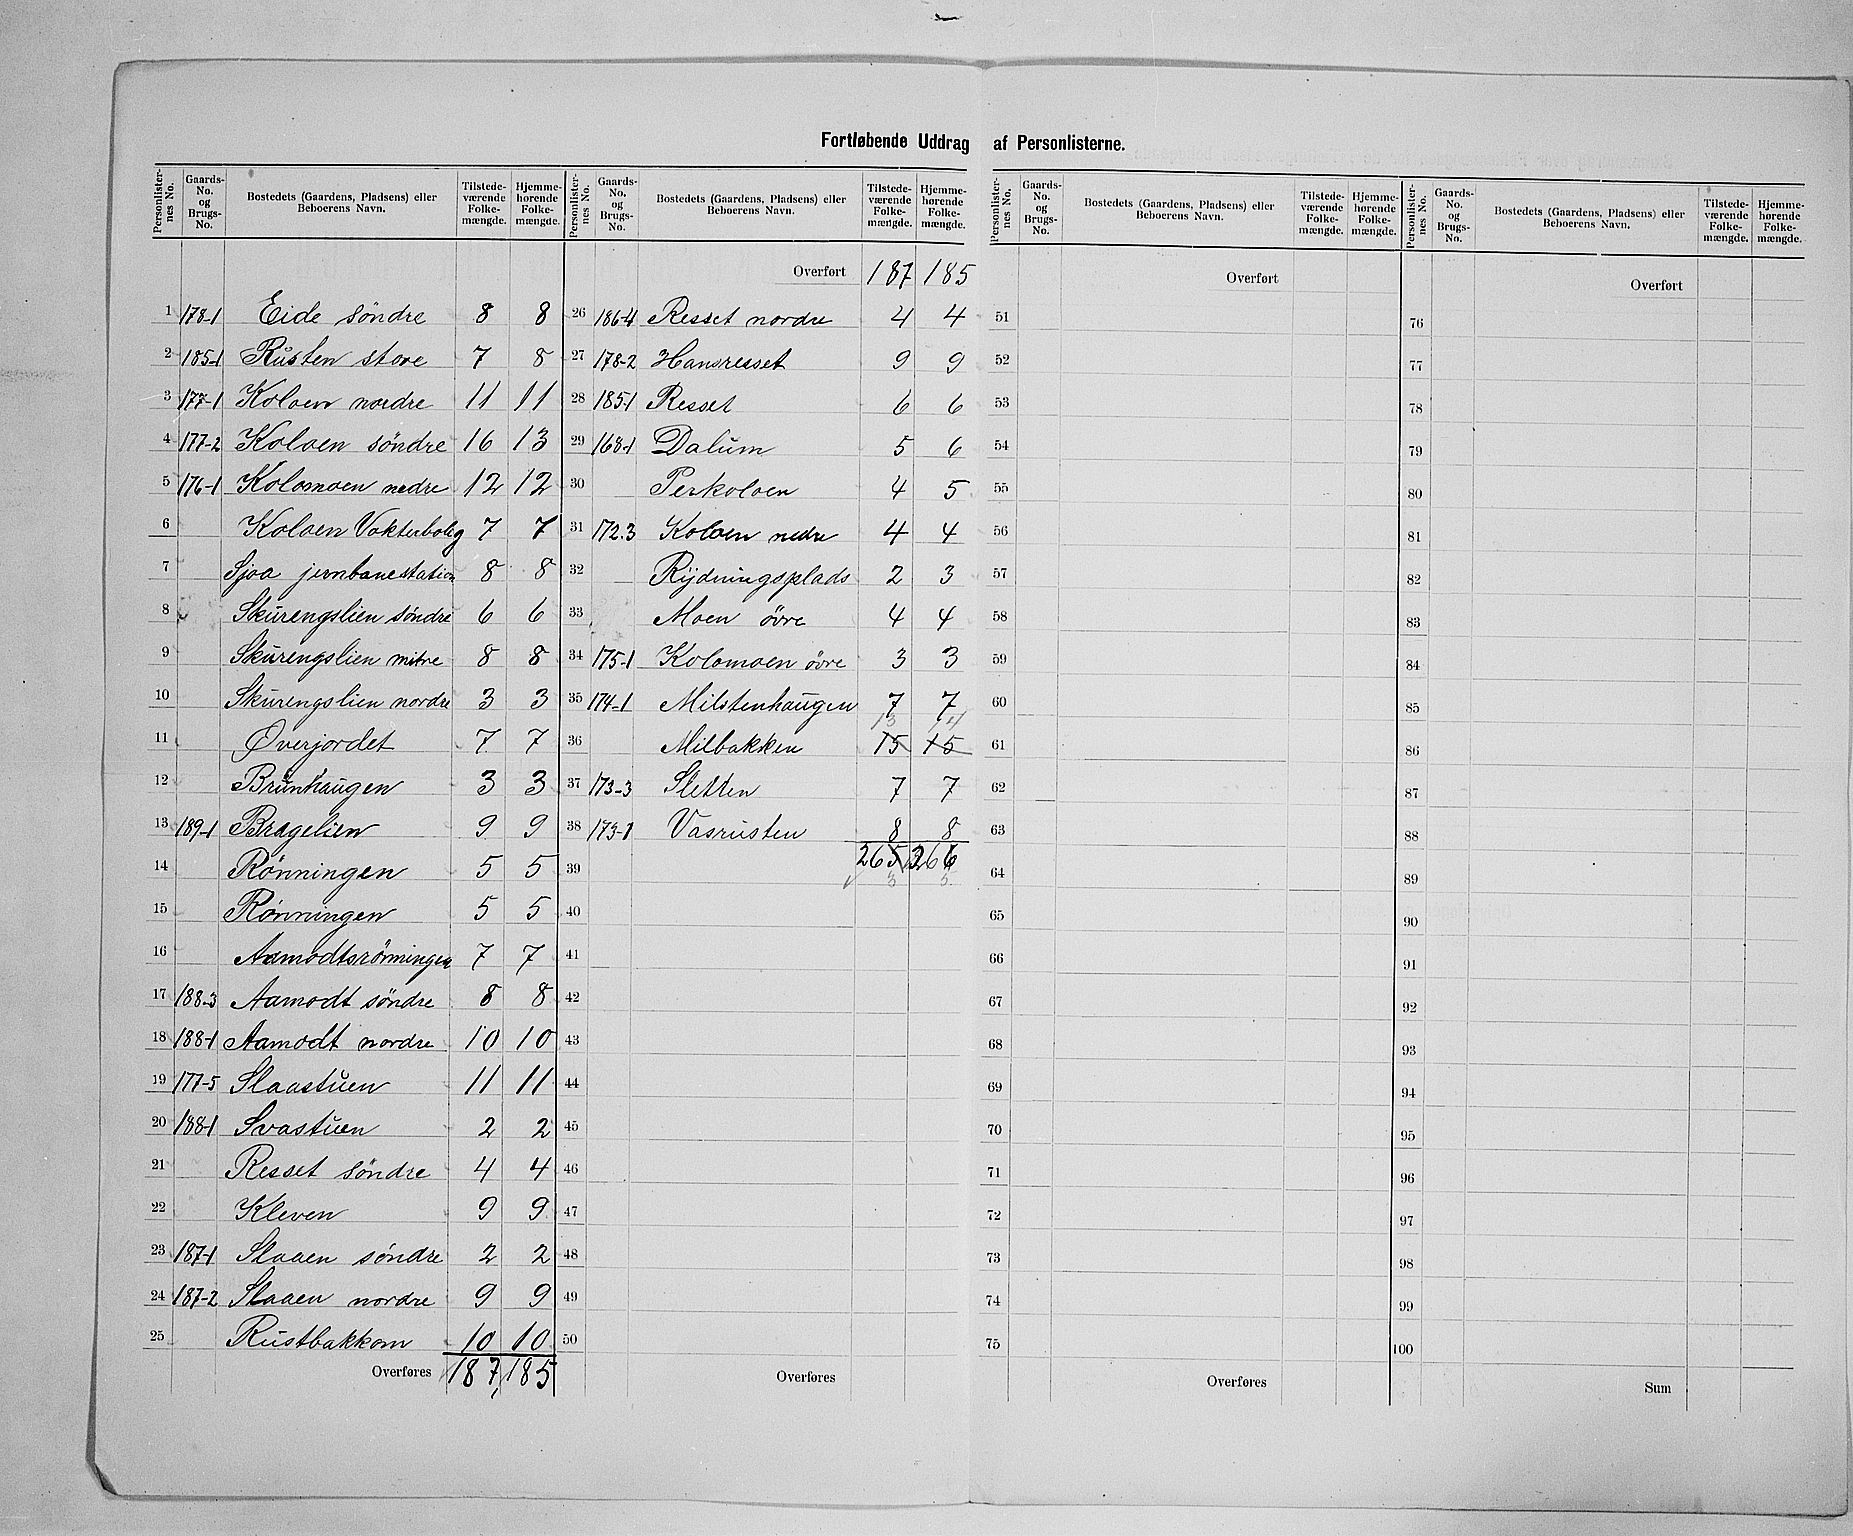 Fortløbende Uddrag af Personlisterne.
Personlisternes No. Gaards-No. og Brugs-No. Bostedets (Gaardens, Pladsens) eller Beboerens Navn. Tilstedeværende Folkemængde. Hjemmehørende Folkemængde.
1 178-1 Eide söndre 8 8
2 185-1 Rusten store 7 8
3 177-1 Koloen nordre 11 11
4 177-2 Koloen söndre 16 13
5 176-1 Kolomoen nedre 12 12
6 Koloen Vokterbolig 7 7
7 Sjoa jernbanestation 8 8
8 Skurengslien söndre 6 6
9 Skurengslien mitre 8 8
10 Skurengslien nordre 3 3
11 Øverjordet 7 7
12 Brunhaugen 3 3
13 189-1 Bragelien 9 9
14 Rönningen 5 5
15 Rönningen 5 5
16 Aamodtsrönningen 7 7
17 188-3 Aamodt söndre 8 8
18 188-1 Aamodt nordre 10 10
19 177-5 Slaastuen 11 11
20 188-1 Svastuen 2 2
21 Resset söndre 4 4
22 Kleven 9 9
23 187-1 Slaaen söndre 2 2
24 187-2 Slaaen nordre 9 9
25 Rustbakkom 10 10
Overføres 187 185
Personlisternes No. Gaards-No. og Brugs-No. Bostedets (Gaardens, Pladsens) eller Beboerens Navn. Tilstedeværende Folkemængde. Hjemmehørende Folkemængde.
Overført 187 185
26 186-4 Resset nordre 4 4
27 178-2 Hansresset 9 9
28 185-1 Resset 6 6
29 168-1 Dalum 5 6
30 Perkoloen 4 5
31 172.3 Koloen nedre 4 4
32 Rydningsplads 2 3
33 Moen övre 4 4
34 175-1 Kolomoen övre 3 3
35 174-1 Milstenhaugen 7 7
13 14
36 Milbakken 15 15
37 173-3 Sletten 7 7
38 173-1 Vasrusten 8 8
265 266
39 3 5
40
41
42
43
44
45
46
47
48
49
50
Overføres
Personlisternes No. Gaards-No. og Brugs-No. Bostedets (Gaardens, Pladsens) eller Beboerens Navn. Tilstedeværende Folkemængde. Hjemmehørende Folkemængde.
Overført
51
52
53
54
55
56
57
58
59
60
61
62
63
64
65
66
67
68
69
70
71
72
73
74
75
Overføres
Personlisternes No. Gaards-No. og Brugs-No. Bostedets (Gaardens, Pladsens) eller Beboerens Navn. Tilstedeværende Folkemængde. Hjemmehørende Folkemængde.
Overført
76
77
78
79
80
81
82
83
84
85
86
87
88
89
90
91
92
93
94
95
96
97
98
99
100
Sum